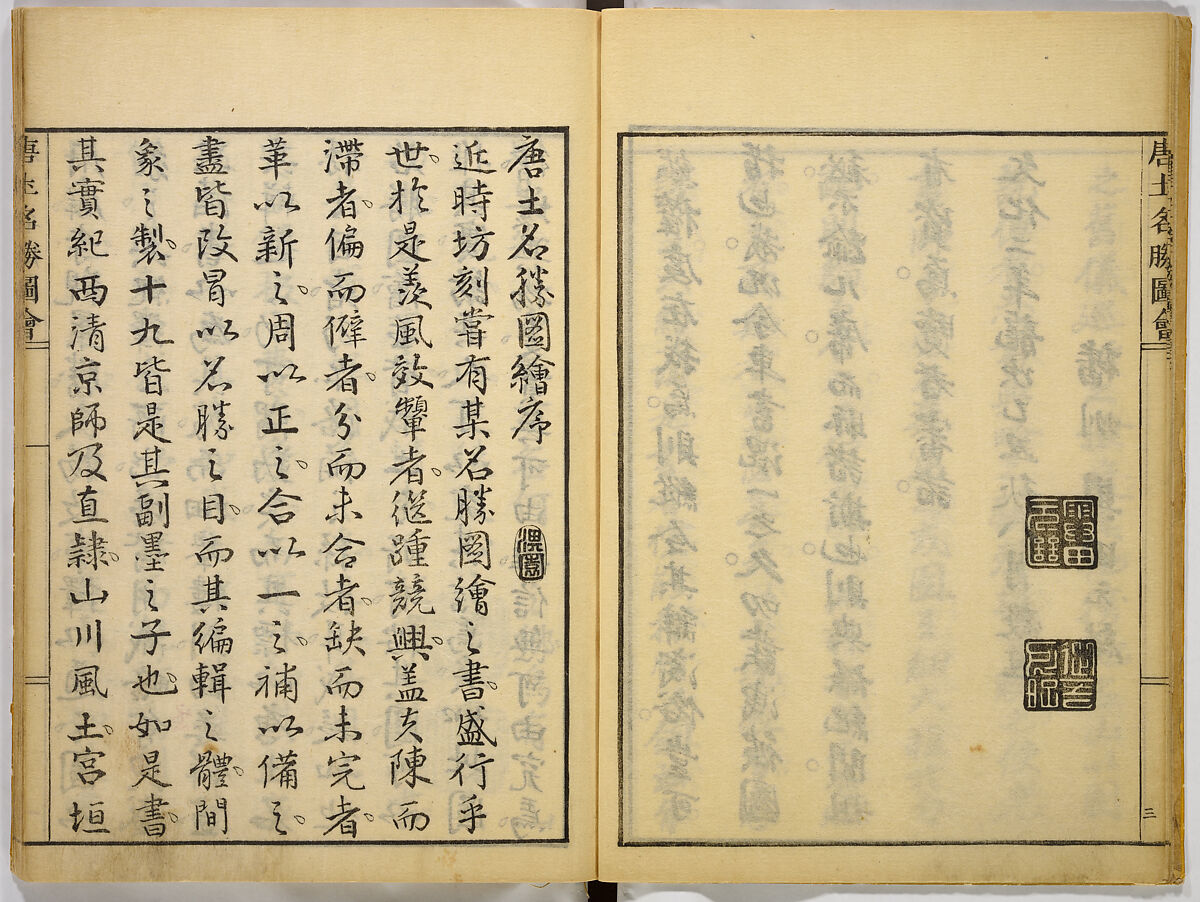 唐土名勝圖會
三
唐土名勝圖繪序
近時坊刻嘗有某名勝圖繪之書。盛行乎
世。於是羨風效顰者。繼踵競興。蓋夫陳而
滯者。偏而僻者。分而未合者。缺而未完者。
革以新之。周以正之。合以一之。補以備之。
盡皆改冒以名勝之目。而其編輯之體。間
象之製。十九皆是其副墨之子也。如是書。
其實紀西清京師及直隸。山川風土。宮垣
唐土名勝圖會